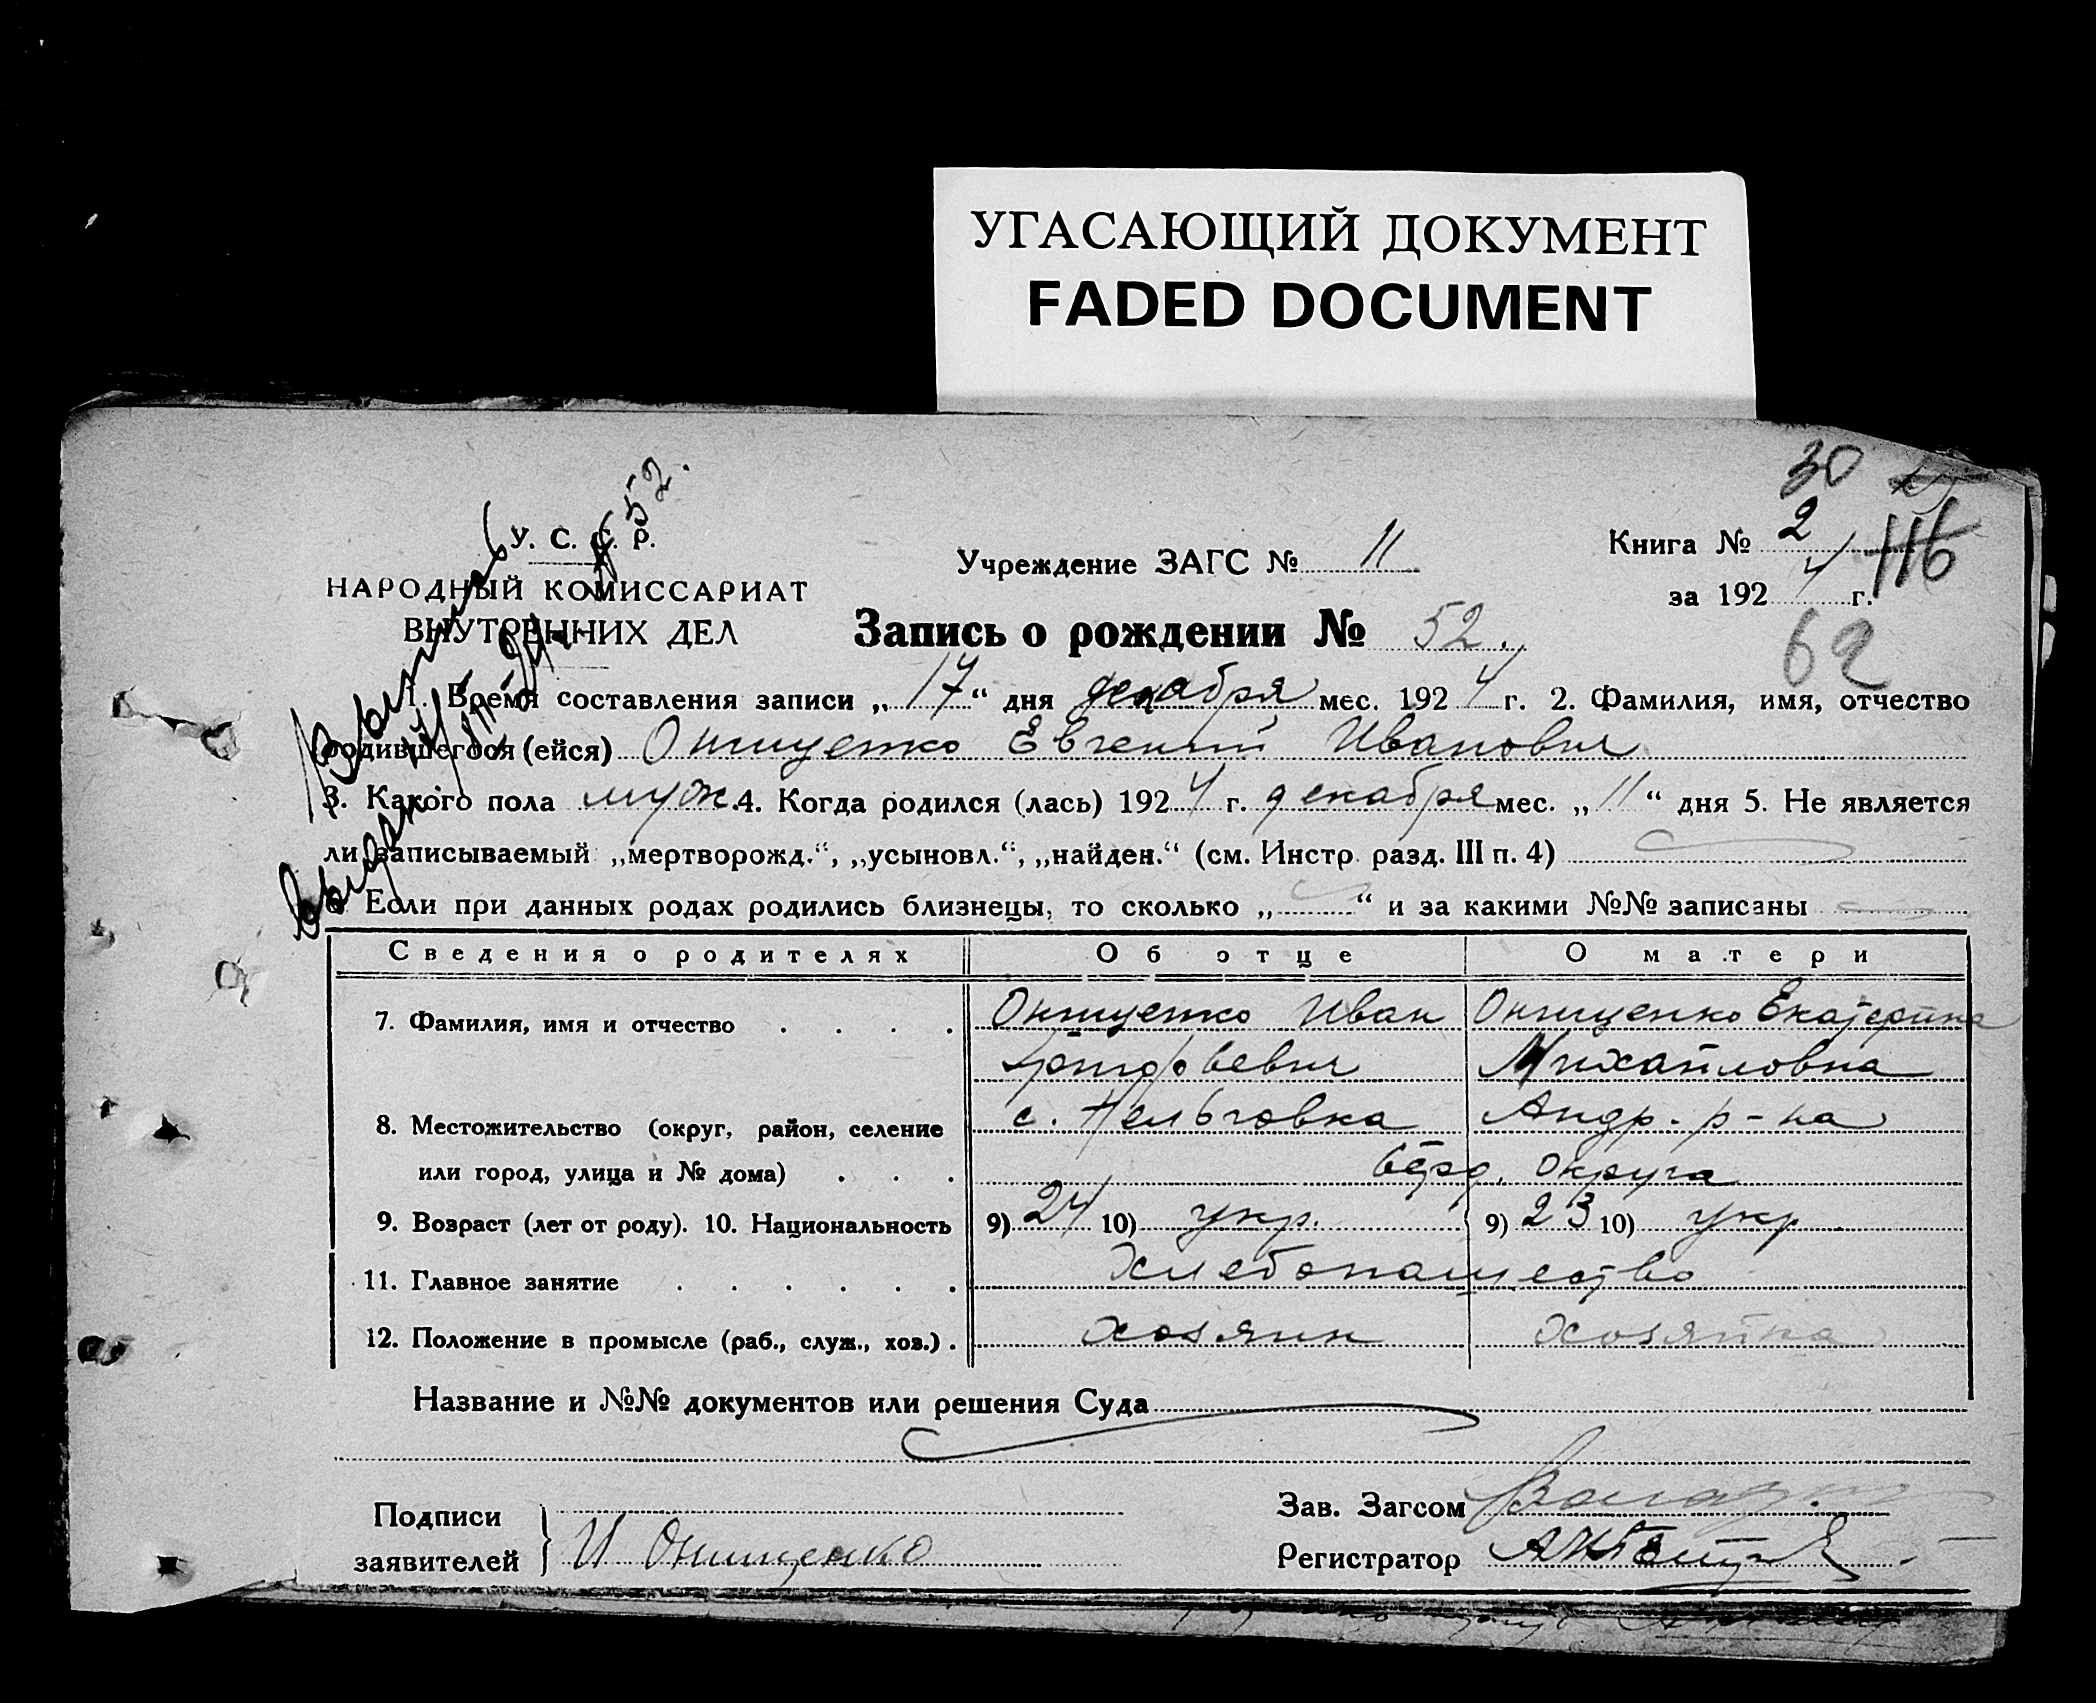 УГАСАЮЩИЙ ДОКУМЕНТ
FADED DOCUMENT
30
116
62
У. С. С. Р.
НАРОДНЫЙ КОМИССАРИАТ
ВНУТРЕННИХ ДЕЛ
Учреждение ЗАГС № 11
Книга № 2
за 1924 г.
Запись о рождении № 52.
1. Время составления записи „17“ дня декабря мес. 1924 г. 2. Фамилия, имя, отчество
родившегося (ейся) Онищенко Евгений Иванович
3. Какого пола муж. 4. Когда родился (лась) 1924 г. декабря мес. „11“ дня 5. Не является
ли записываемый „мертворожд.“, „усыновл.“, „найден.“ (см. Инстр. разд. III п. 4)
6 Если при данных родах родились близнецы, то сколько „ “ и за какими №№ записаны
Сведения о родителях Об отце О матери
7. Фамилия, имя и отчество Онищенко Иван Онищенко Екатерина
Михайловна
8. Местожительство (округ, район, селение с. Нельговка Андр. р-на
или город, улица и № дома) Берд. округа
9. Возраст (лет от роду). 10. Национальность 9) 24 10) укр. 9) 23 10) укр.
11. Главное занятие Хлебопашество
12. Положение в промысле (раб., служ., хоз.) хозяин хозяйка
Название и №№ документов или решения Суда
Подписи
заявителей И Онищенко
Зав. Загсом
Регистратор